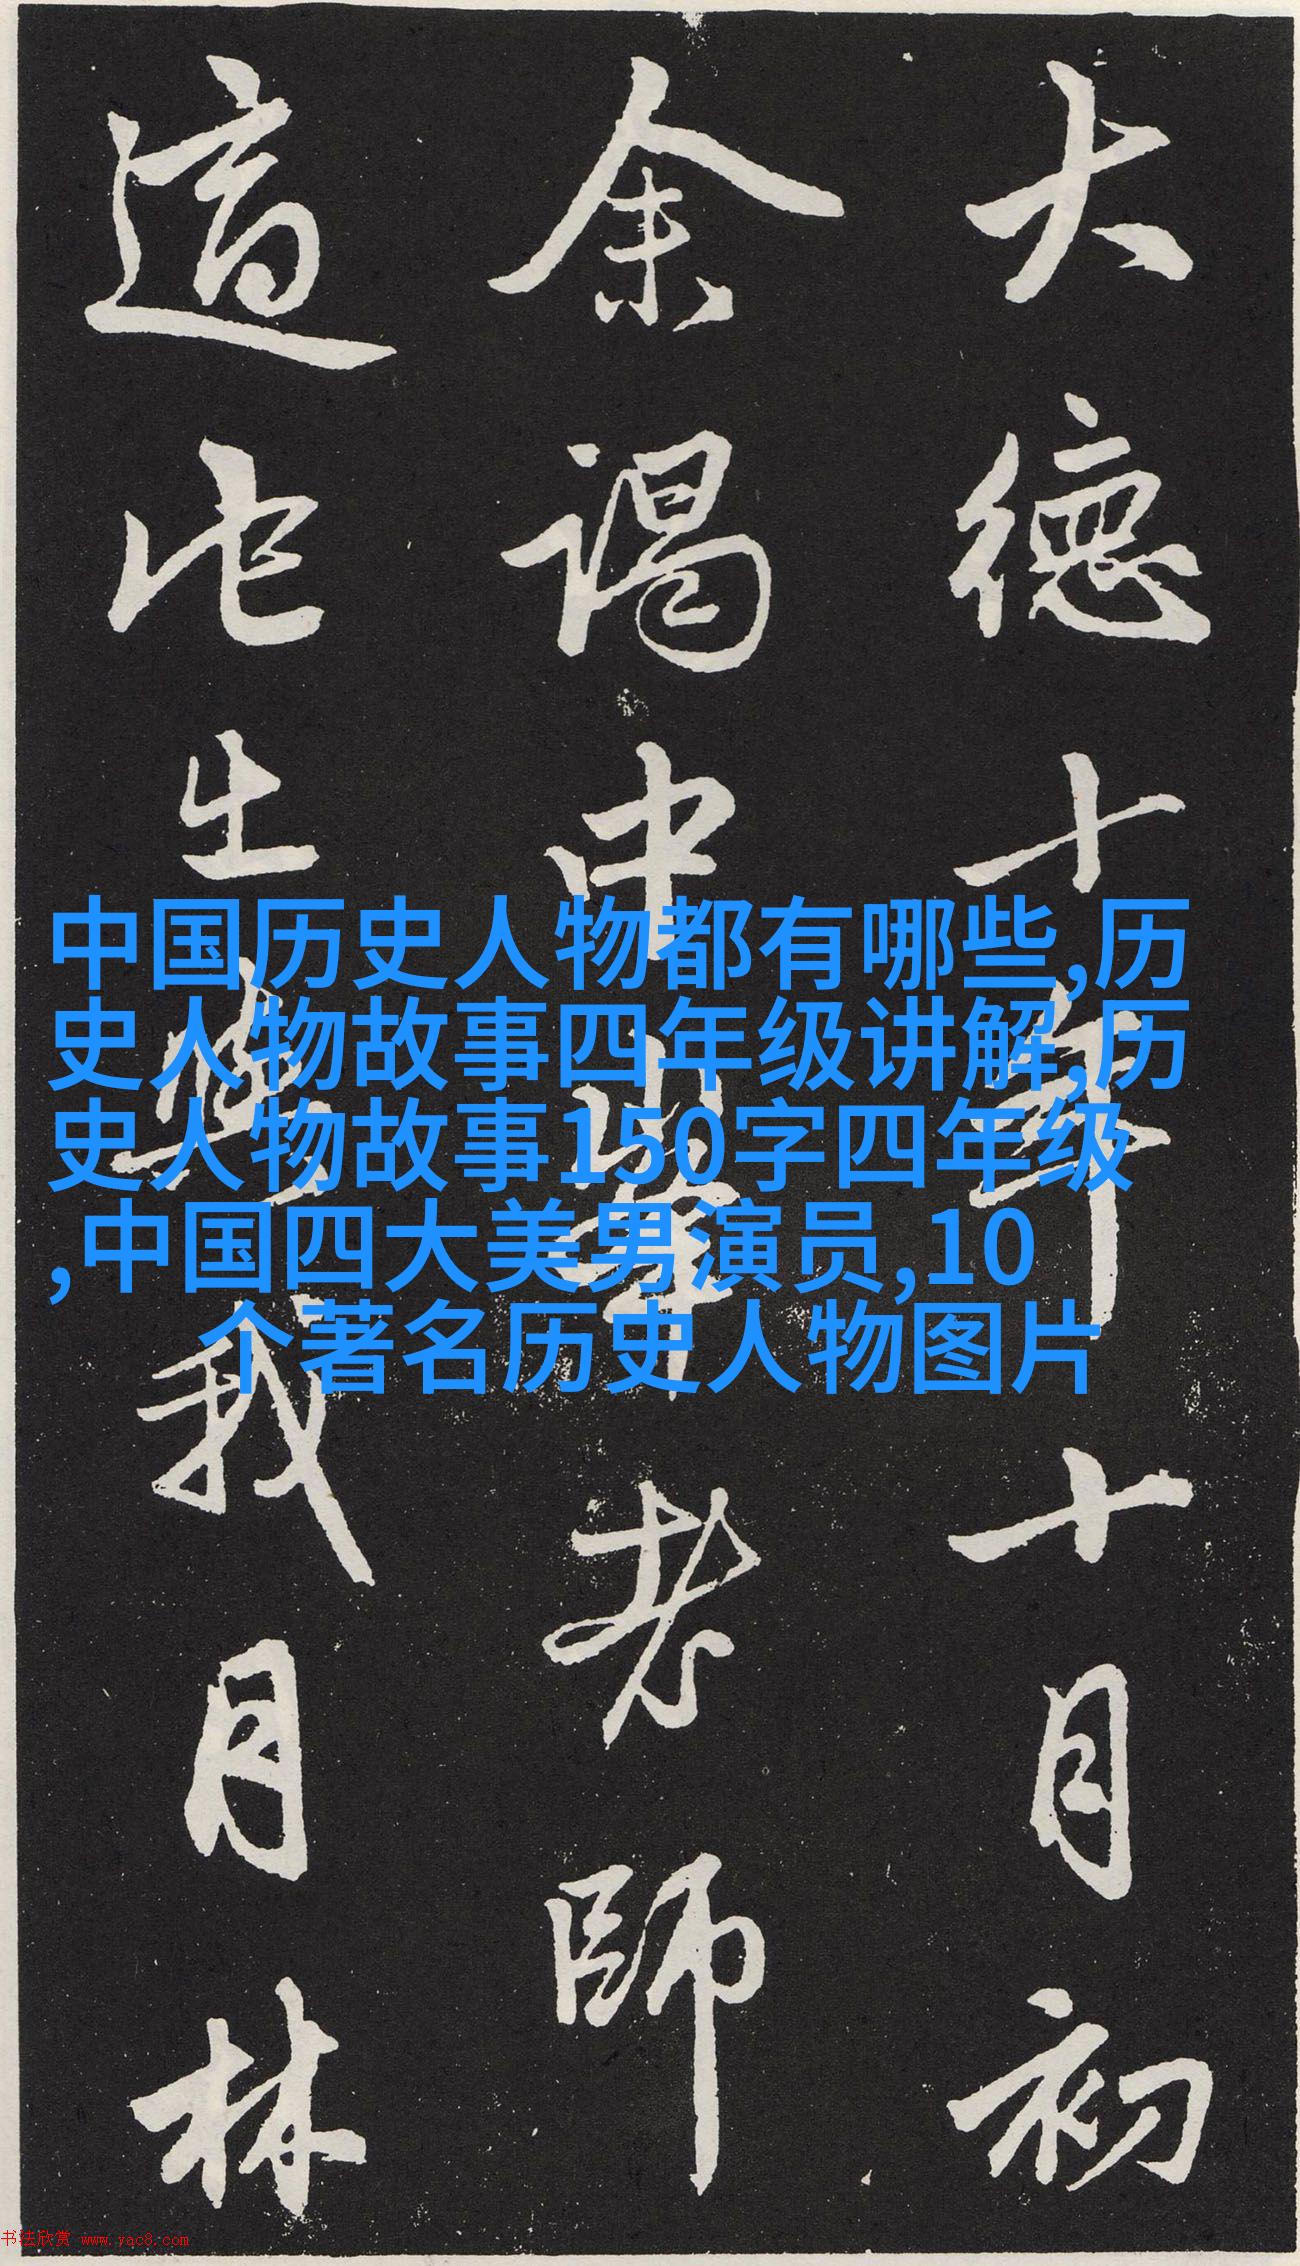 大德十年十月初
余謁中峯老師
適此出與我月林
中国历史人物都有哪些,历
史人物故事四年级讲解,历
史人物故事150字四年级
,中国四大美男演员,10
个著名历史人物图片
书法欣赏 www.yac8.com